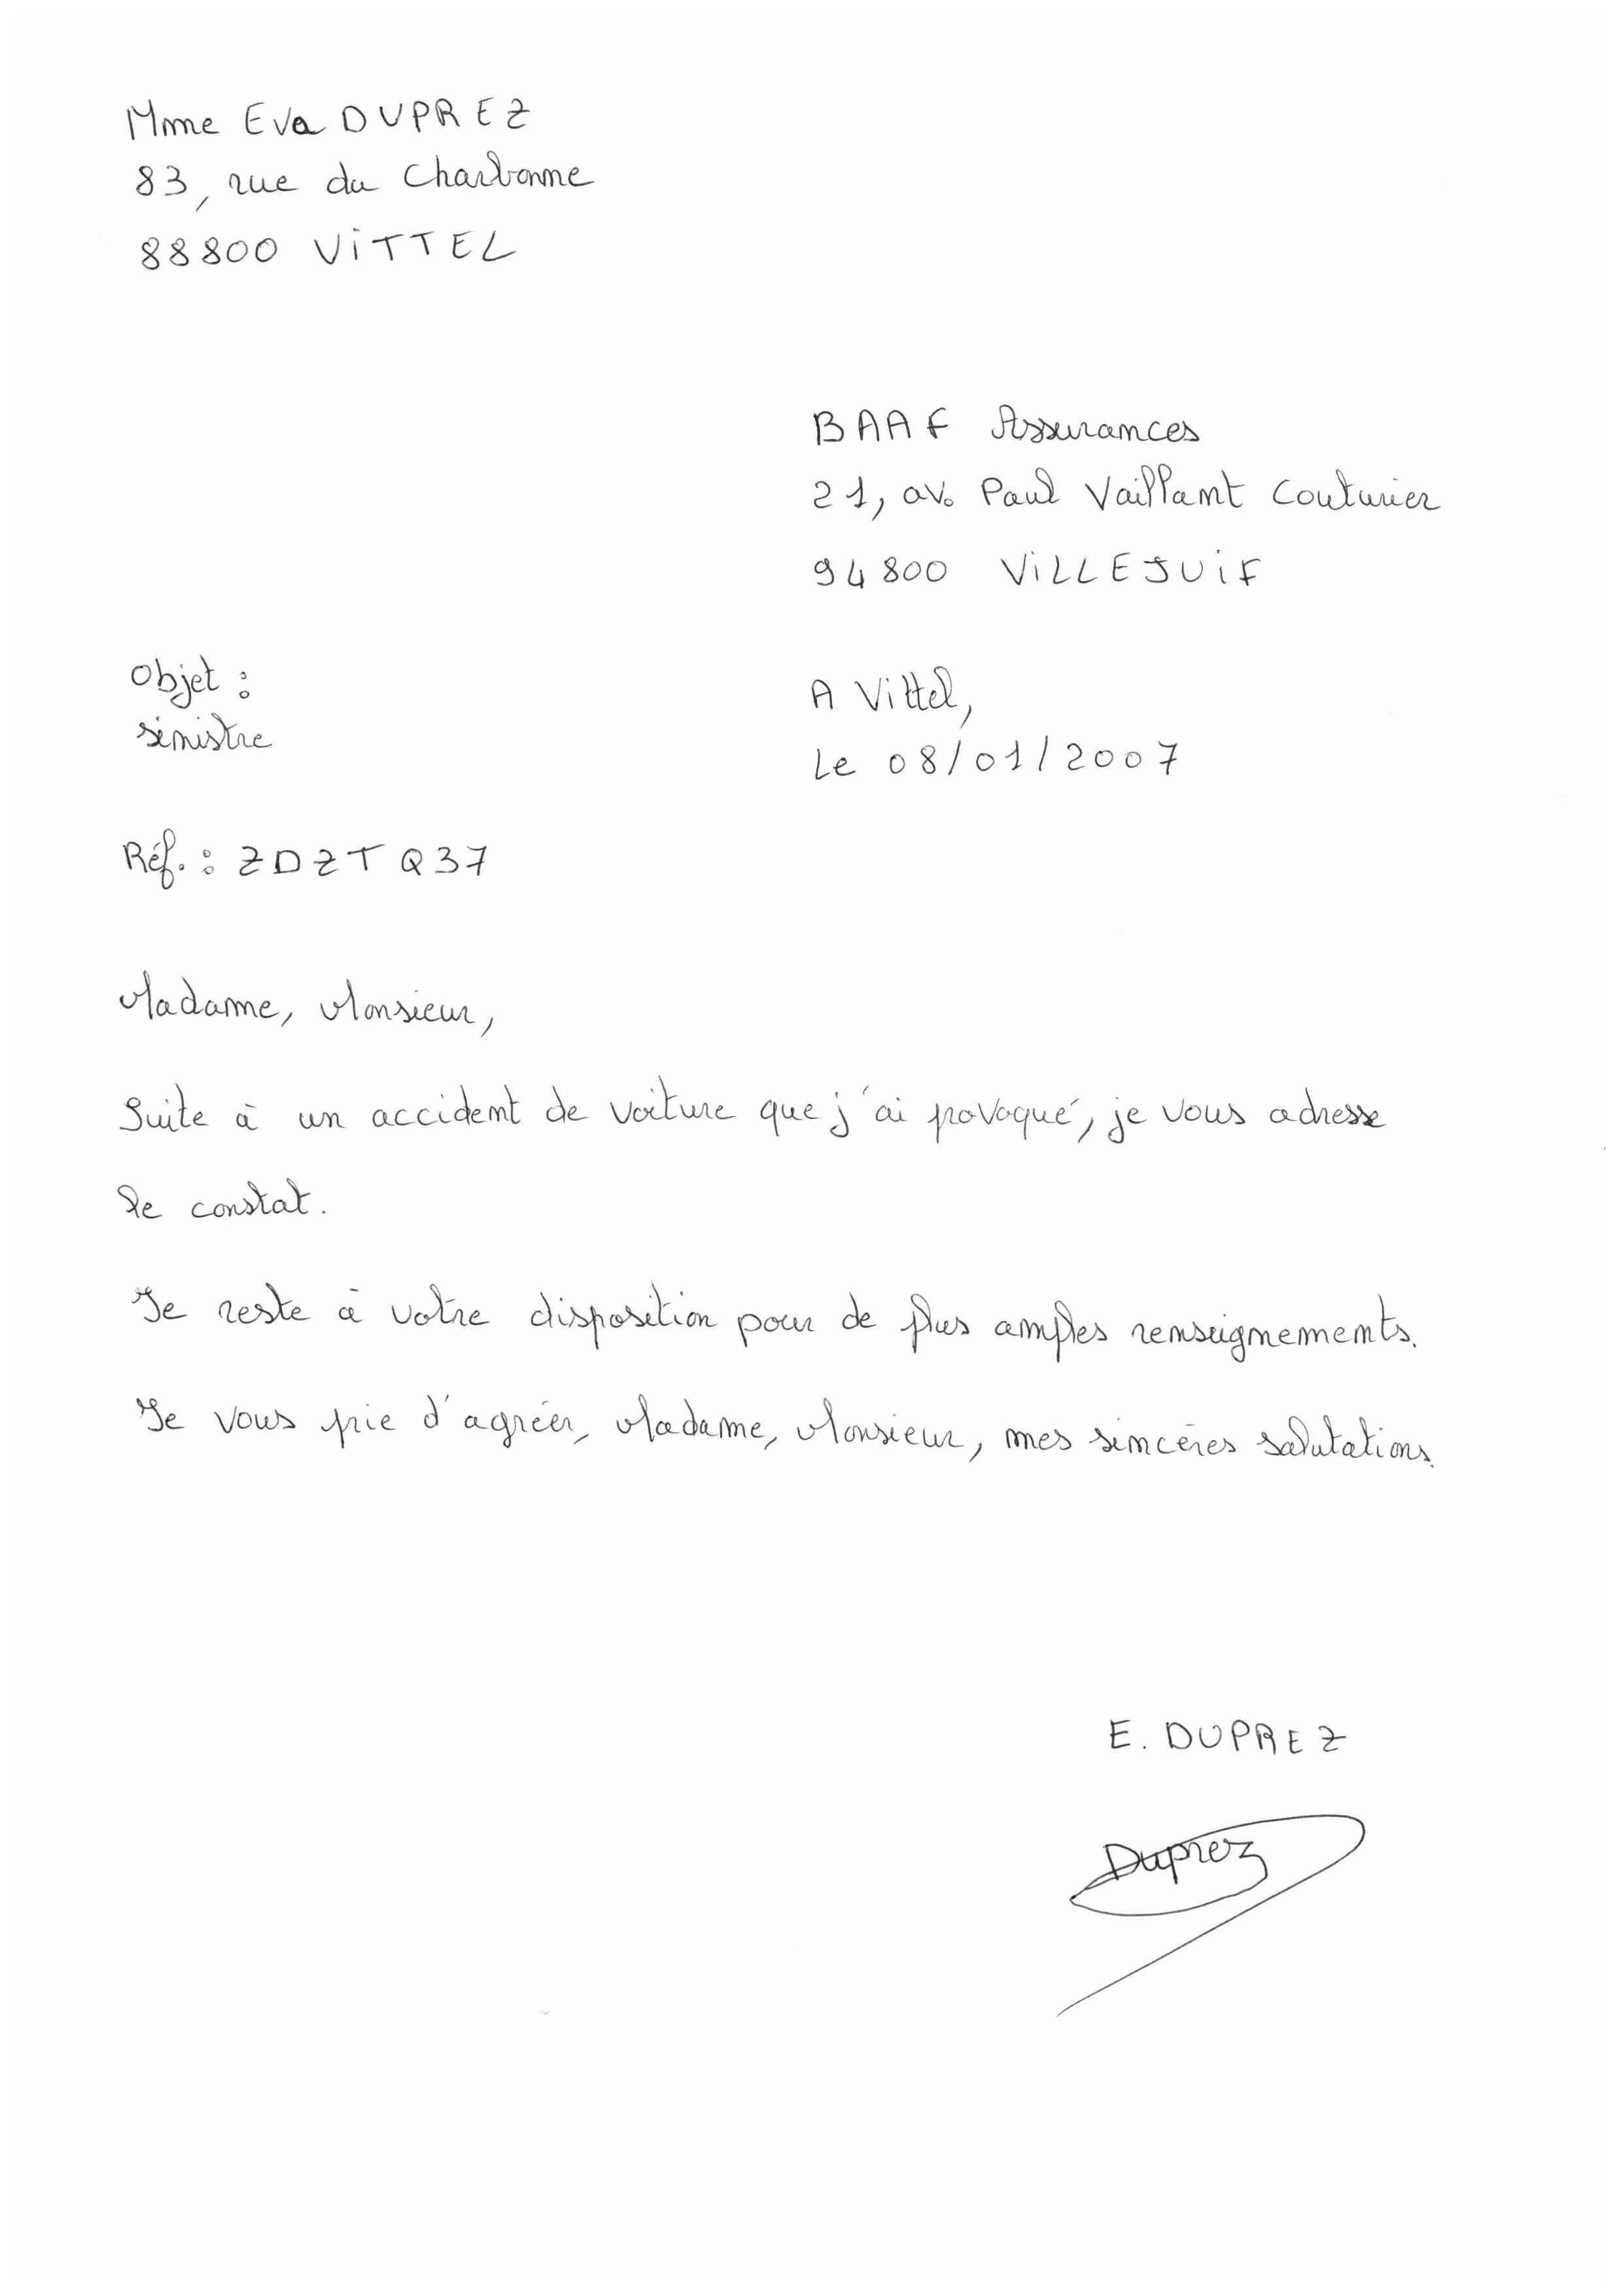 Mme Eva DUPREZ
83, rue du Charbonne
88800 ViTTEL
BAAF Assurances
21, av. Paul Vaillant Couturier
94800 ViLLEJUiF
Objet :
sinistre
A Vittel,
Le 08/01/2007
Réf. : ZDZTQ37
Madame, Monsieur,
Suite à un accident de voiture que j'ai provoqué, je vous adresse
le constat.
Je reste à votre disposition pour de plus amples renseignements.
Je vous prie d'agréer, Madame, Monsieur, mes sincères salutations.
E. DUPREZ
Duprez